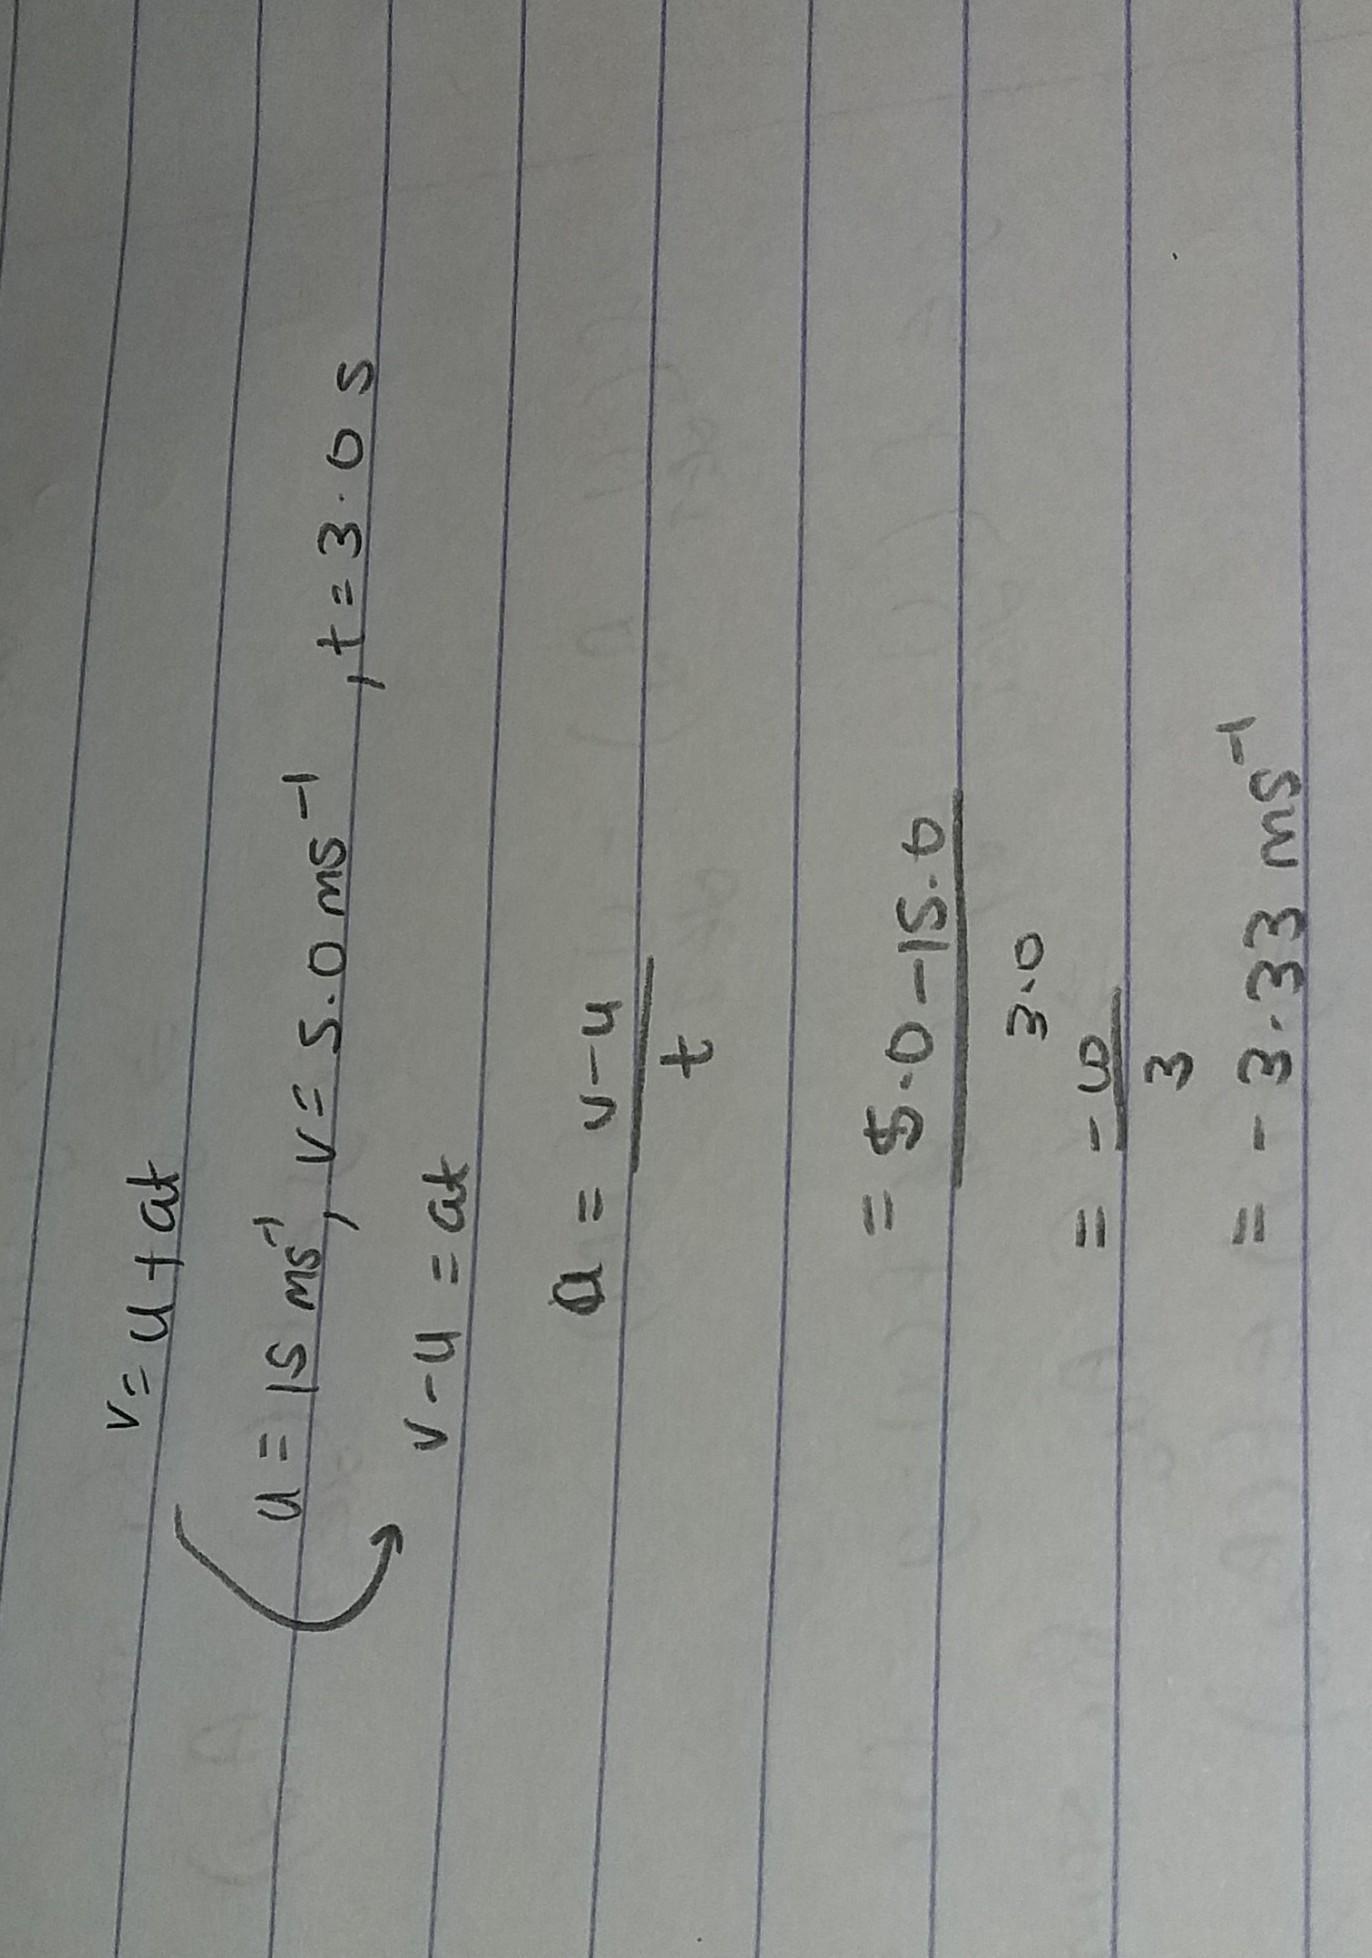 v = u + at
u = 15 ms⁻¹, v = 5.0 ms⁻¹, t = 3.0 s
v - u = at
a = v - u
t
= 5.0 - 15.0
3.0
= -
3
= - 3.33 ms⁻¹